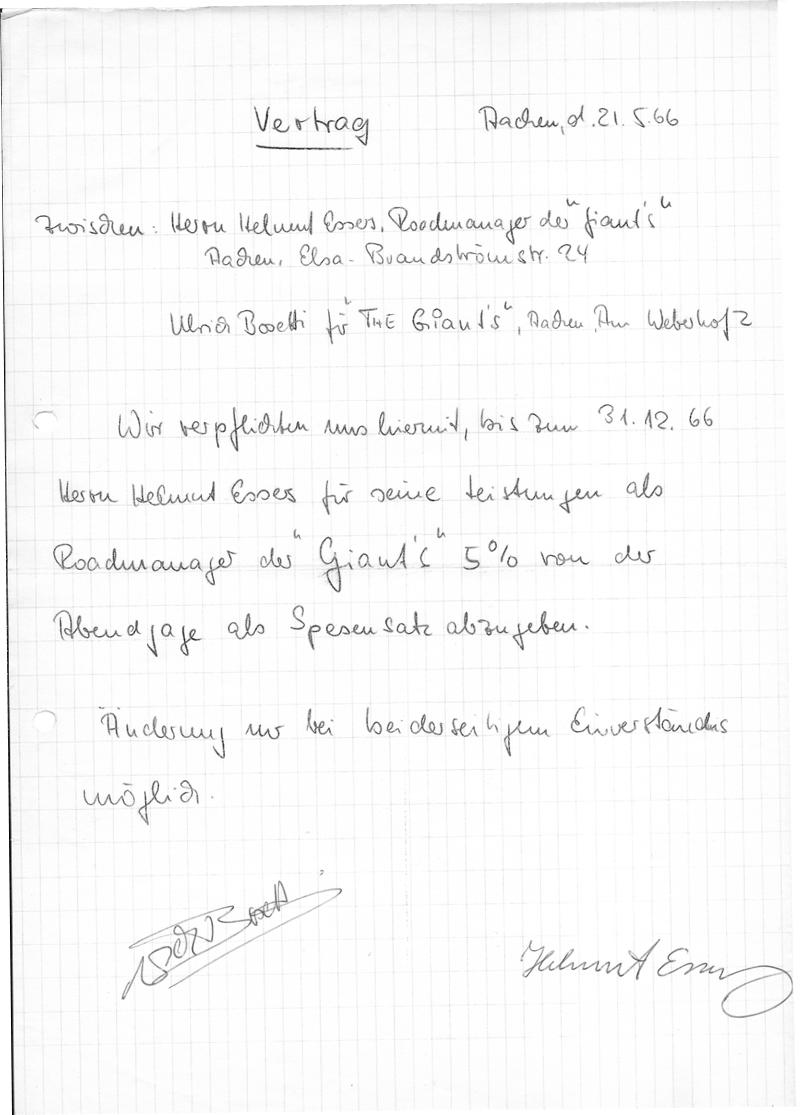 Vertrag Aachen, d. 21. 5. 66
Zwischen: Herrn Helmut Esser, Roadmanager der "Giant's"
Aachen, Elsa-Brandströmstr. 24
Ulrich Bosetti für "THE Giant's", Aachen, Am Weberhof 2
Wir verpflichten uns hiermit, bis zum 31. 12. 66
Herrn Helmut Esser für seine Leistungen als
Roadmanager der "Giant's" 5% von der
Abendgage als Spesensatz abzugeben.
Änderung nur bei beiderseitigem Einverständnis
möglich.
Bosetti
Helmut Esser